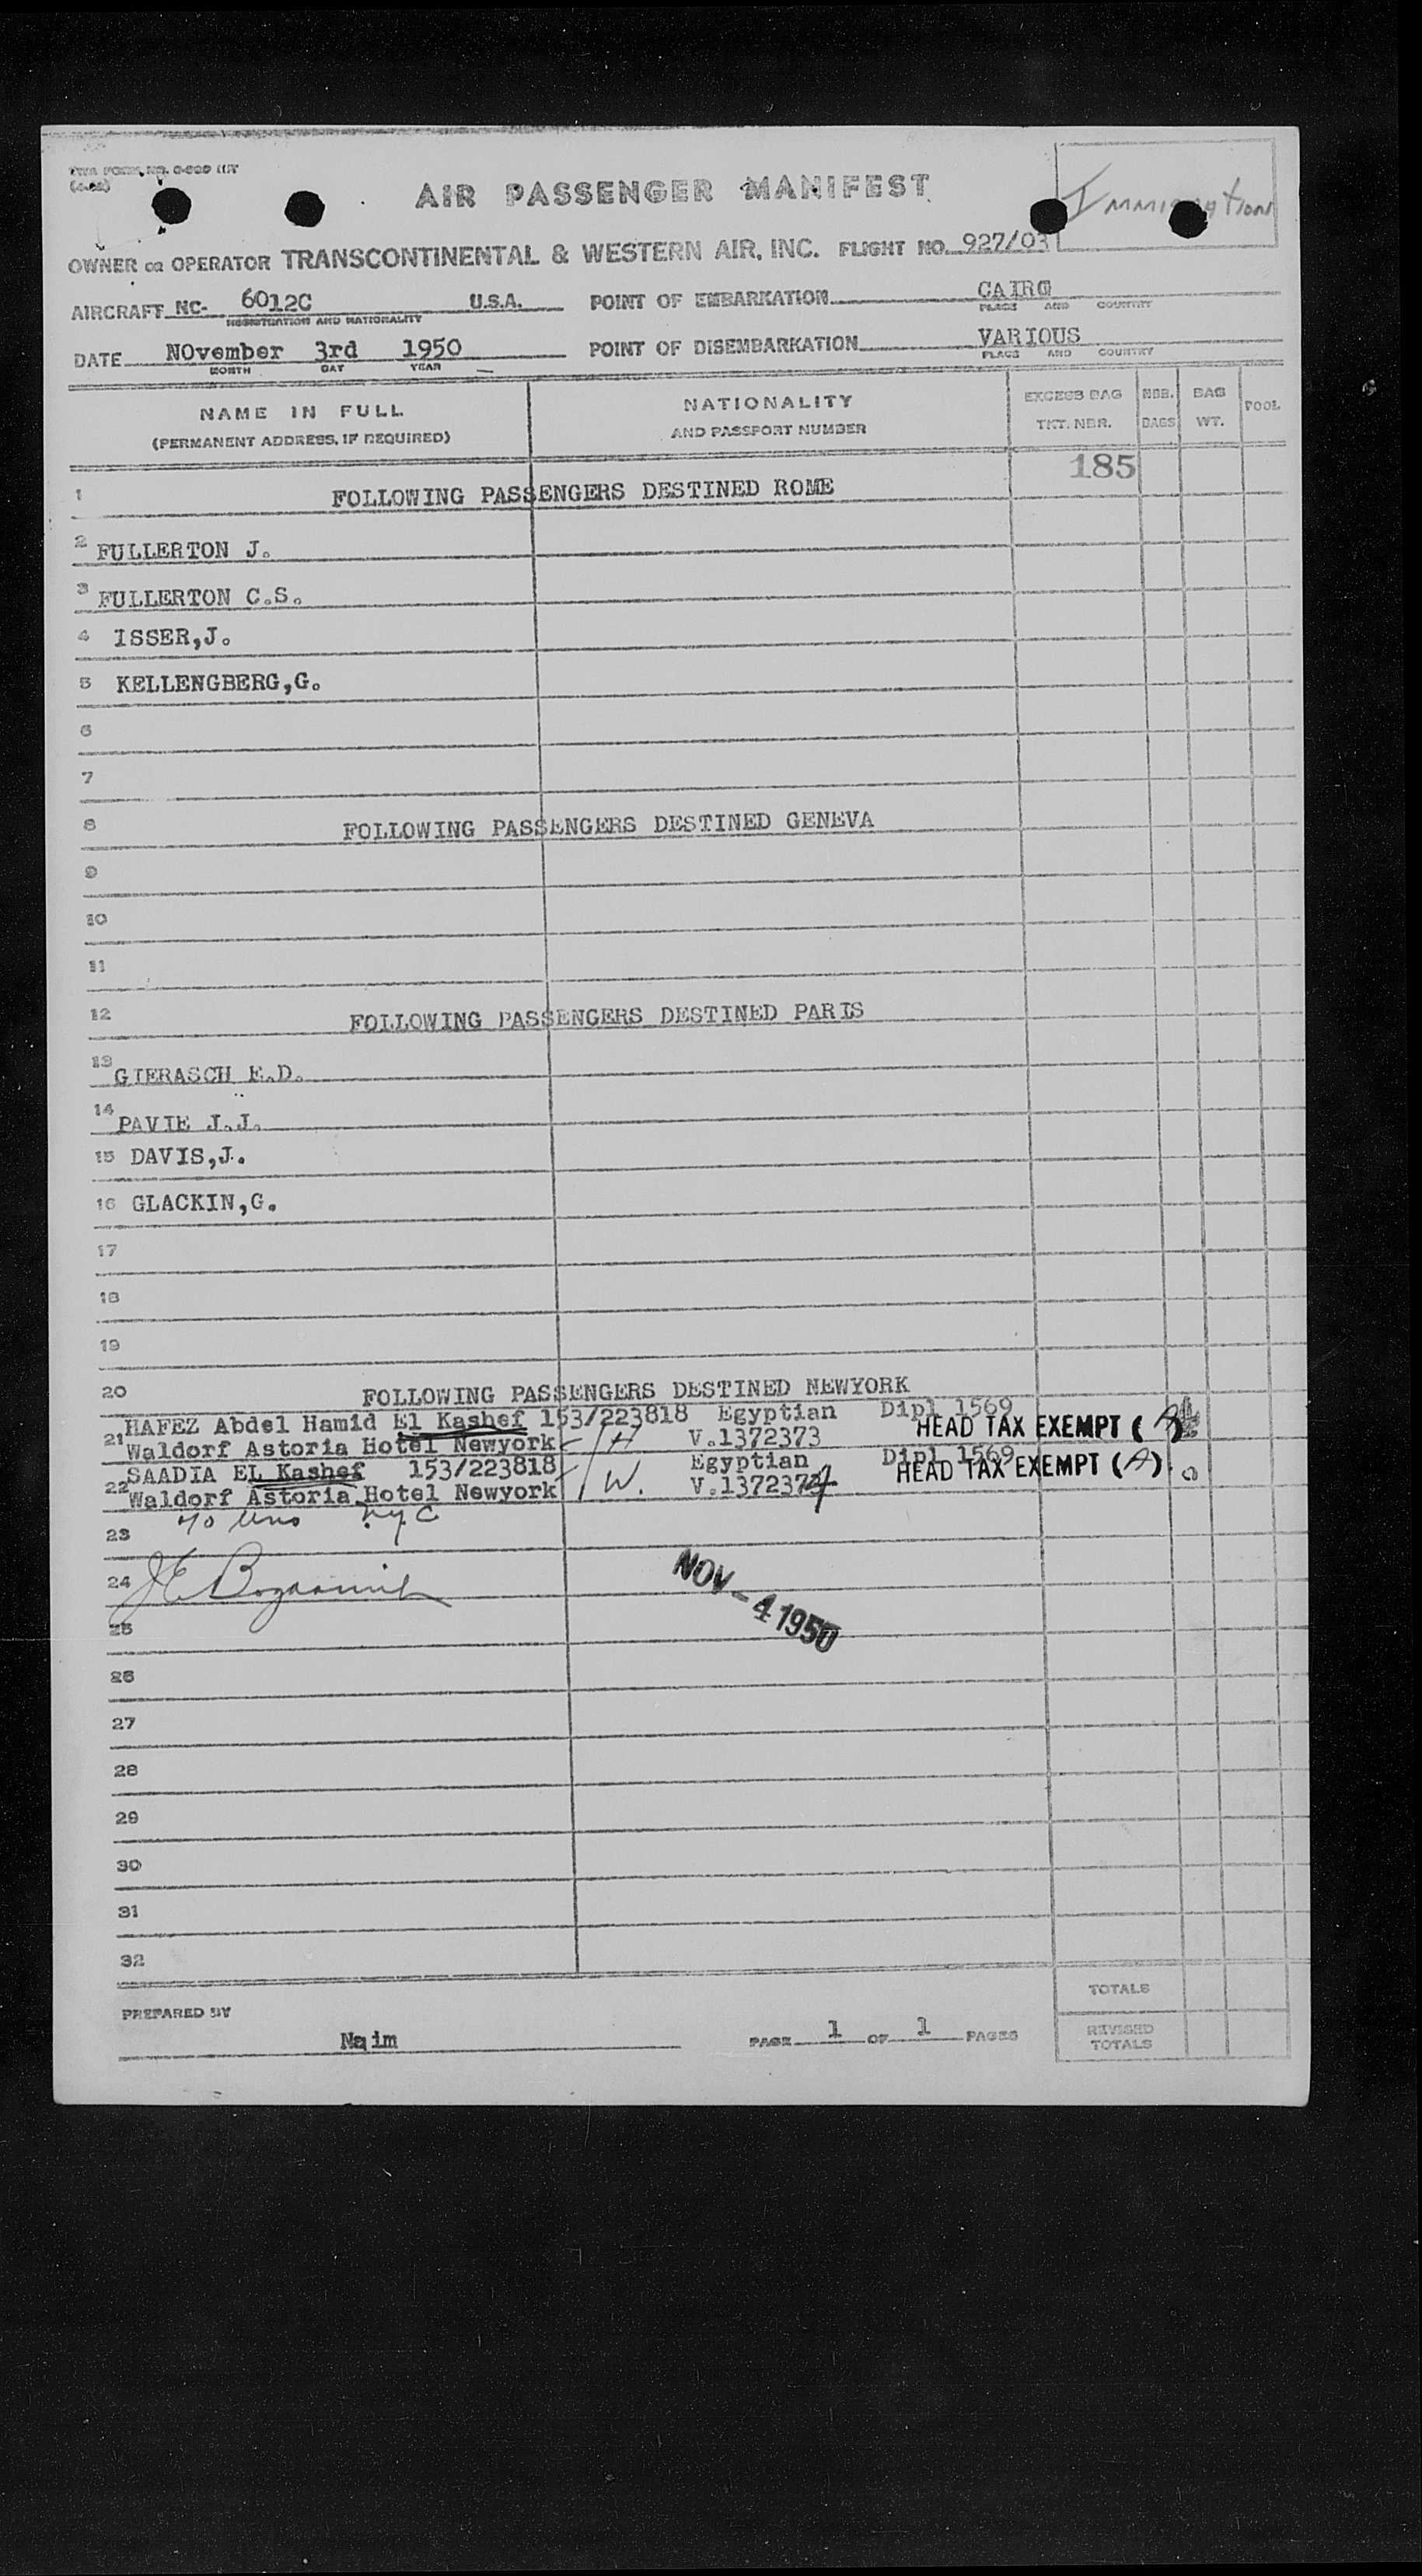 TWA FORM NO.
AIR PASSENGER MANIFEST
Immigration
OWNER OR OPERATOR TRANSCONTINENTAL & WESTERN AIR, INC. FLIGHT NO. 927/03
AIRCRAFT NC- 6012C U.S.A. POINT OF EMBARKATION CAIRO
REGISTRATION AND NATIONALITY PLACE AND COUNTRY
DATE NOvember 3rd 1950 POINT OF DISEMBARKATION VARIOUS
MONTH DAY YEAR PLACE AND COUNTRY
NAME IN FULL NATIONALITY EXCESS BAG NBR. BAG POOL
(PERMANENT ADDRESS, IF REQUIRED) AND PASSPORT NUMBER TKT. NBR. BAGS WT.
185
1 FOLLOWING PASSENGERS DESTINED ROME
2 FULLERTON J.
3 FULLERTON C.S.
4 ISSER,J.
5 KELLENGBERG,G.
6
7
8 FOLLOWING PASSENGERS DESTINED GENEVA
9
10
11
12 FOLLOWING PASSENGERS DESTINED PARIS
13 GIERASCH E.D.
14 PAVIE J.J.
15 DAVIS,J.
16 GLACKIN,G.
17
18
19
20 FOLLOWING PASSENGERS DESTINED NEWYORK
HAFEZ Abdel Hamid El Kashef 153/223818 Egyptian Dipl 1569
21 Waldorf Astoria Hotel Newyork H V.1372373 HEAD TAX EXEMPT (A)
SAADIA EL Kashef 153/223818 Egyptian Dipl 1569
22 Waldorf Astoria Hotel Newyork W. V.1372374 HEAD TAX EXEMPT (A)
23 NYC
24
NOV - 4 1950
25
26
27
28
29
30
31
32
TOTALS
PREPARED BY Naim PAGE 1 OF 1 PAGES
REVISED TOTALS